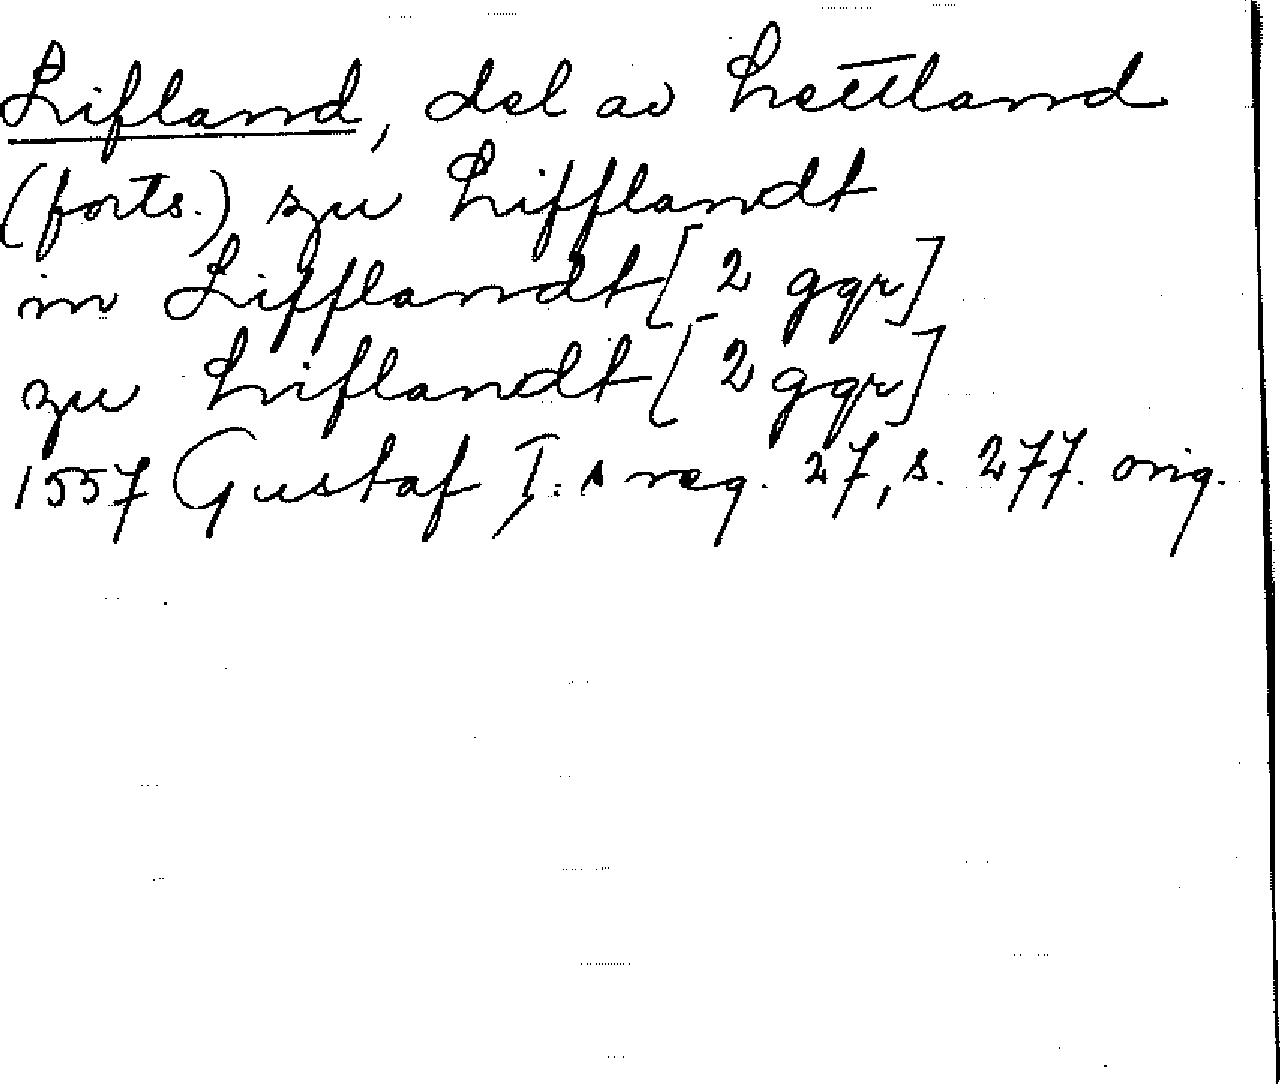 Lifland, del av Lettland
(forts.) zu Lifflandt
in Lifflandt [2 ggr]
zu Liflandt [2 ggr]
1557 Gustaf I:s reg. 27, s. 277. orig.